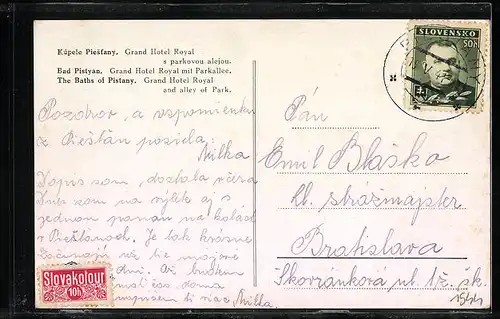 Kúpele Piešťany. Grand Hotel Royal
s parkovou alejou.
Bad Pistyan. Grand Hotel Royal mit Parkallee.
The Baths of Pistany. Grand Hotel Royal
and alley of Park.
Pozdrav a vzpomienku
z Piešťan posiela
Milka
Dopis som dostala včera
Dnes som na výlete aj s
jednou panou na kolách
v Piešťanoch. Je tak krásne
už tie moje
dni.
čas doma
napísem ti viac Milka.
SLOVENSKO
50h
Slovakolour
10h
Pán
Emil Blaško
strážmajster
Bratislava
Škorvánková ul.